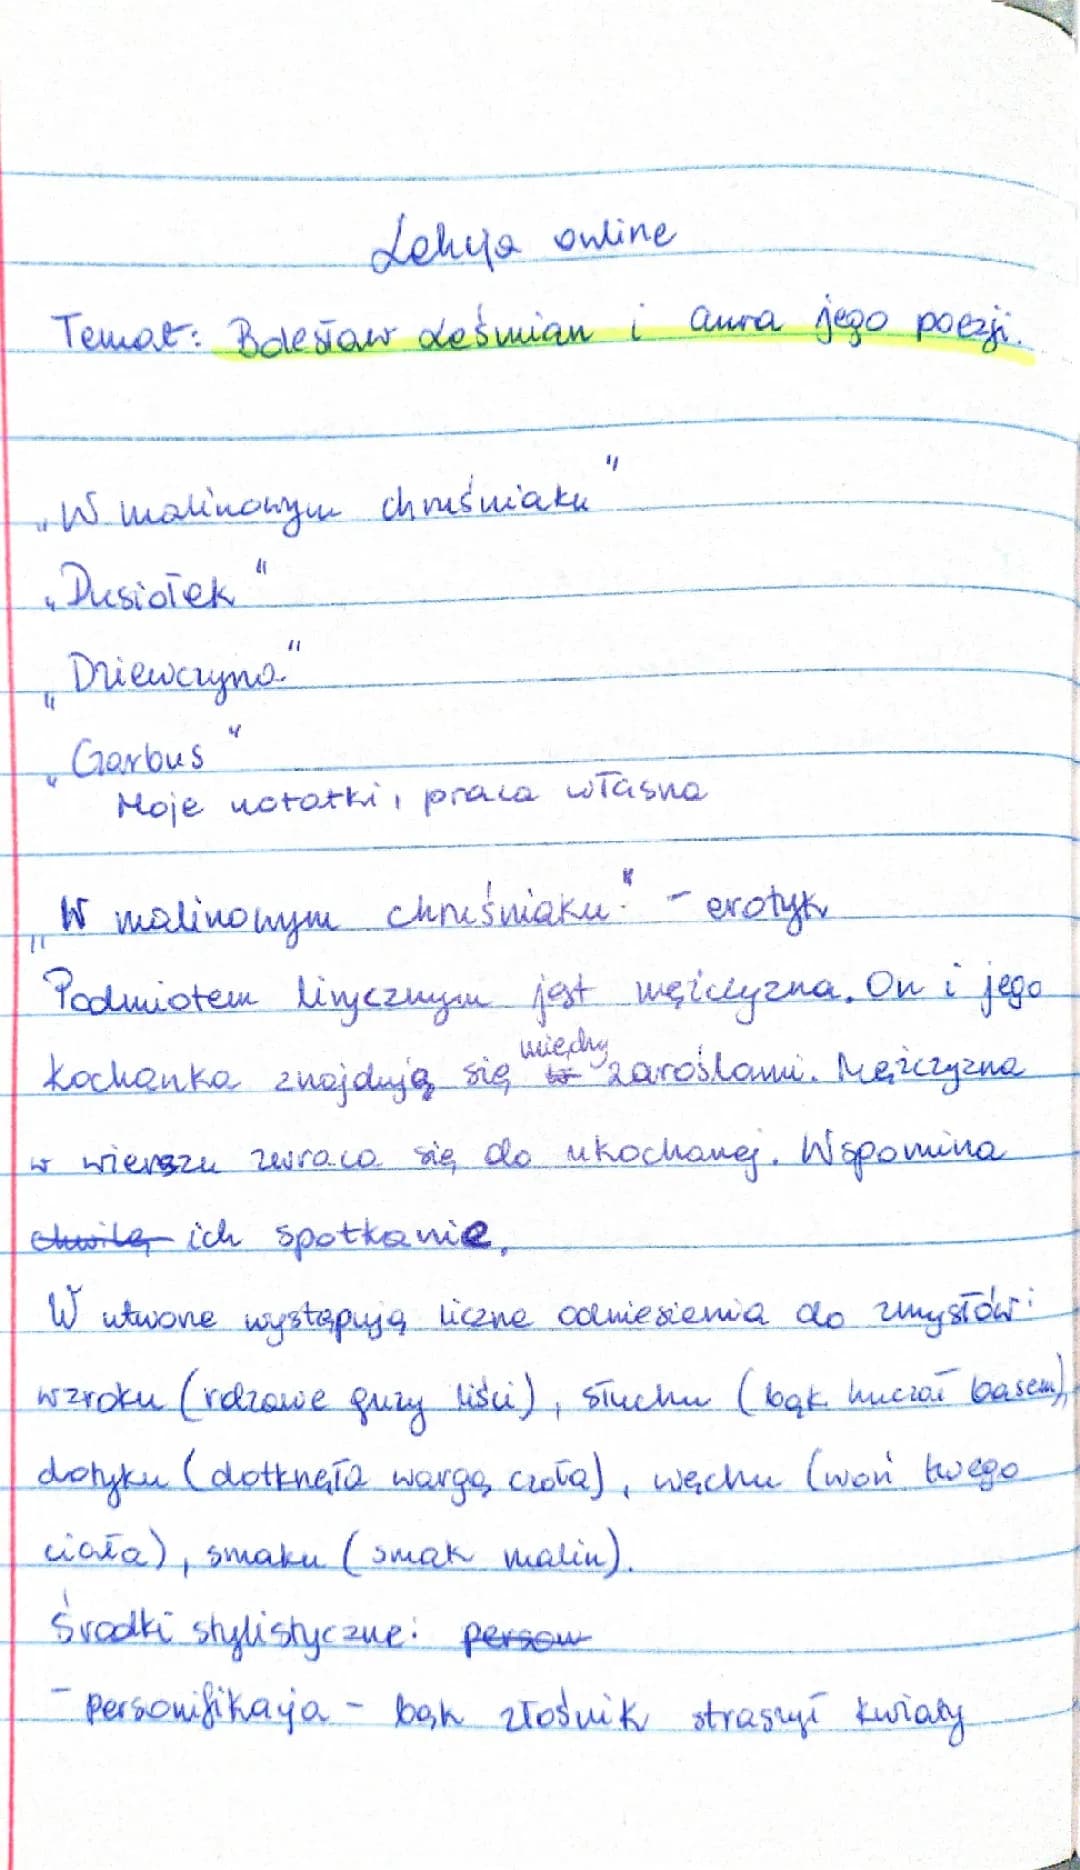 Lekcja online
Temat: Bolesław Leśmian i aura jego poezji.
„W malinowym chruśniaku"
„Dusiołek"
„Dziewczyna"
„Garbus"
Moje notatki, praca własna
„W malinowym chruśniaku" - erotyk
Podmiotem lirycznym jest mężczyzna. On i jego
kochanka znajdują się między zaroślami. Mężczyzna
w wierszu zwraca się do ukochanej. Wspomina
chwilę ich spotkanie.
W utworze występują liczne odniesienia do zmysłów:
wzroku (rdzawe guzy liści), słuchu (bąk huczał basem),
dotyku (dotknęła wargą czoła), węchu (woń twego
ciała), smaku (smak malin).
Środki stylistyczne: person
- personifikacja - bąk złośnik straszył kwiaty